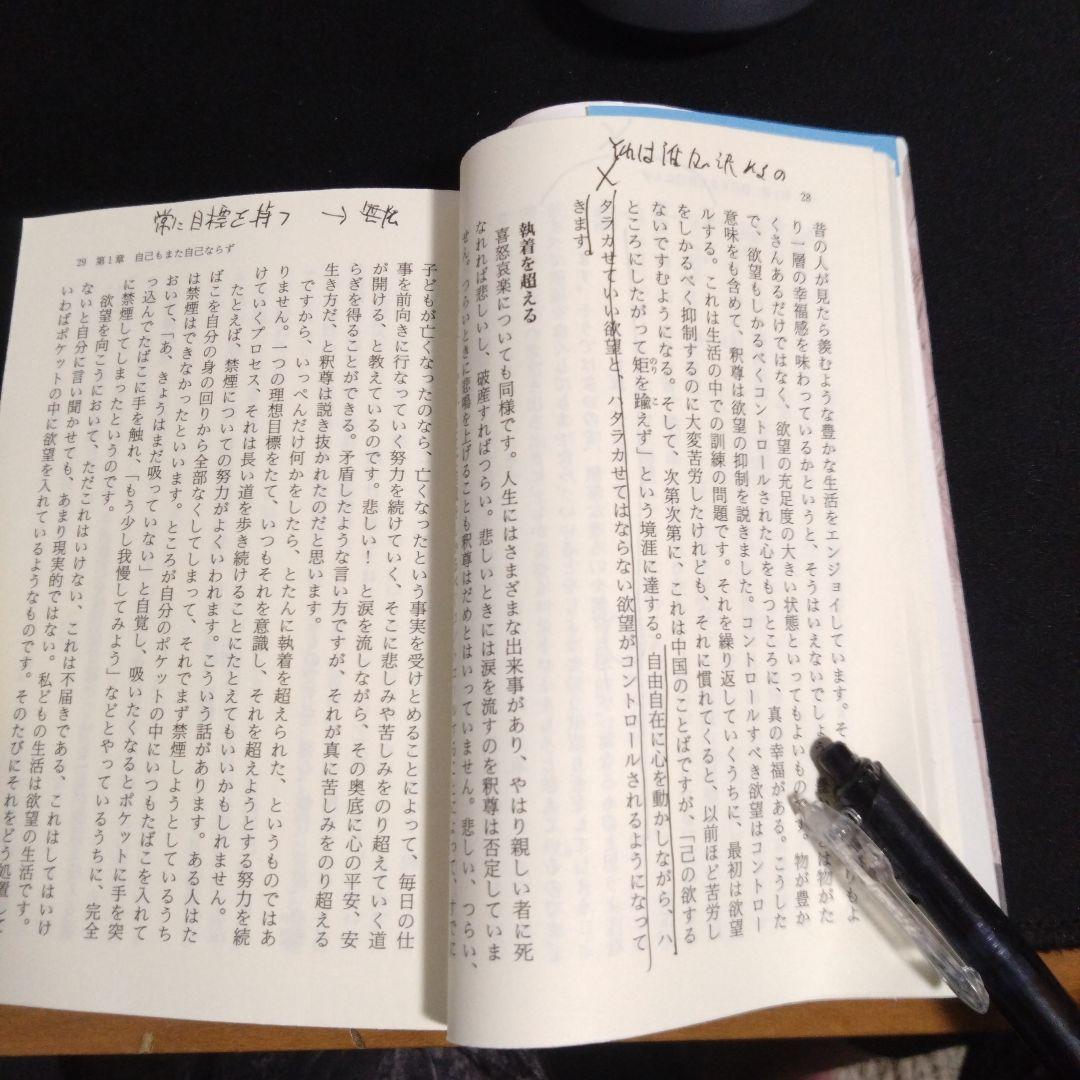 それは誰が決れるの
28
昔の人が見たら羨むような豊かな生活をエンジョイしています。そ
り一層の幸福感を味わっているかというと、そうはいえないでしょ
くさんあるだけではなく、欲望の充足度の大きい状態といってもよいもの
で、欲望もしかるべくコントロールされた心をもつところに、真の幸福がある。こうした
意味をも含めて、釈尊は欲望の抑制を説きました。コントロールすべき欲望はコントロー
ルする。これは生活の中での訓練の問題です。それを繰り返していくうちに、最初は欲望
をしかるべく抑制するのに大変苦労したけれども、それに慣れてくると、以前ほど苦労し
ないですむようになる。そして、次第次第に、これは中国のことばですが、「己の欲する
ところにしたがって矩を踰えず」という境涯に達する。自由自在に心を動かしながら、ハ
のり
こ
タラカせていい欲望と、ハタラカせてはならない欲望がコントロールされるようになって
きます。
執着を超える
喜怒哀楽についても同様です。人生にはさまざまな出来事があり、やはり親しい者に死
なれれば悲しいし、破産すればつらい。悲しいときには涙を流すのを釈尊は否定していま
せん。つらいときに悲鳴を上げることも釈尊はだめとはいっていません。悲しい、つらい、
常に目標を持つ →
29 第1章 自己もまた自己ならず
子どもが亡くなったのなら、亡くなったという事実を受けとめることによって、毎日の仕
事を前向きに行なっていく努力を続けていく、そこに悲しみや苦しみをのり超えていく道
が開ける、と教えているのです。悲しい!と涙を流しながら、その奥底に心の平安、安
らぎを得ることができる。矛盾したような言い方ですが、それが真に苦しみをのり超える
生き方だ、と釈尊は説き抜かれたのだと思います。
ですから、いっぺんだけ何かをしたら、とたんに執着を超えられた、というものではあ
りません。一つの理想目標をたて、いつもそれを意識し、それを超えようとする努力を続
けていくプロセス、それは長い道を歩き続けることにたとえてもいいかもしれません。
たとえば、禁煙についての努力がよくいわれます。こういう話があります。ある人はた
ばこを自分の身の回りから全部なくしてしまって、それでまず禁煙しようとしているうち
は禁煙はできなかったといいます。ところが自分のポケットの中にいつもたばこを入れて
おいて、「あ、きょうはまだ吸っていない」と自覚し、吸いたくなるとポケットに手を突
っ込んでたばこに手を触れ、「もう少し我慢してみよう」などとやっているうちに、完全
に禁煙してしまったというのです。
欲望を向こうにおいて、ただこれはいけない、これは不届きである、これはしてはいけ
ないと自分に言い聞かせても、あまり現実的ではない。私どもの生活は欲望の生活です。
いわばポケットの中に欲望を入れているようなものです。そのたびにそれをどう処置して